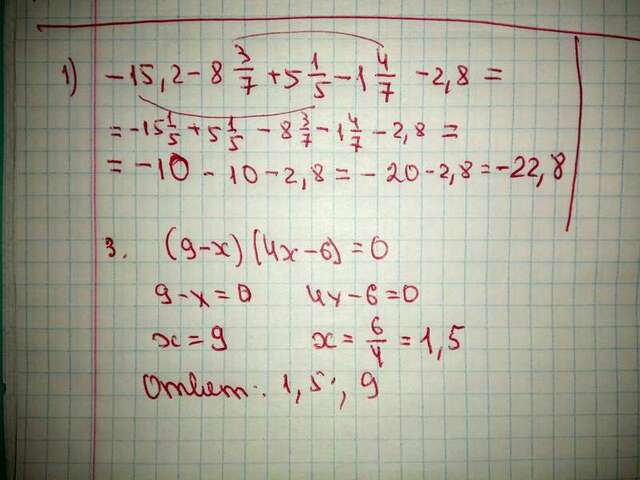 1) -15,2 - 8 3/7 + 5 1/5 - 1 4/7 - 2,8 =
= -15 1/5 + 5 1/5 - 8 3/7 - 1 4/7 - 2,8 =
= -10 - 10 - 2,8 = -20 - 2,8 = -22,8
3. (9-x)(4x-6)=0
9-x=0 4x-6=0
x=9 x=6/4=1,5
Ответ: 1,5; 9